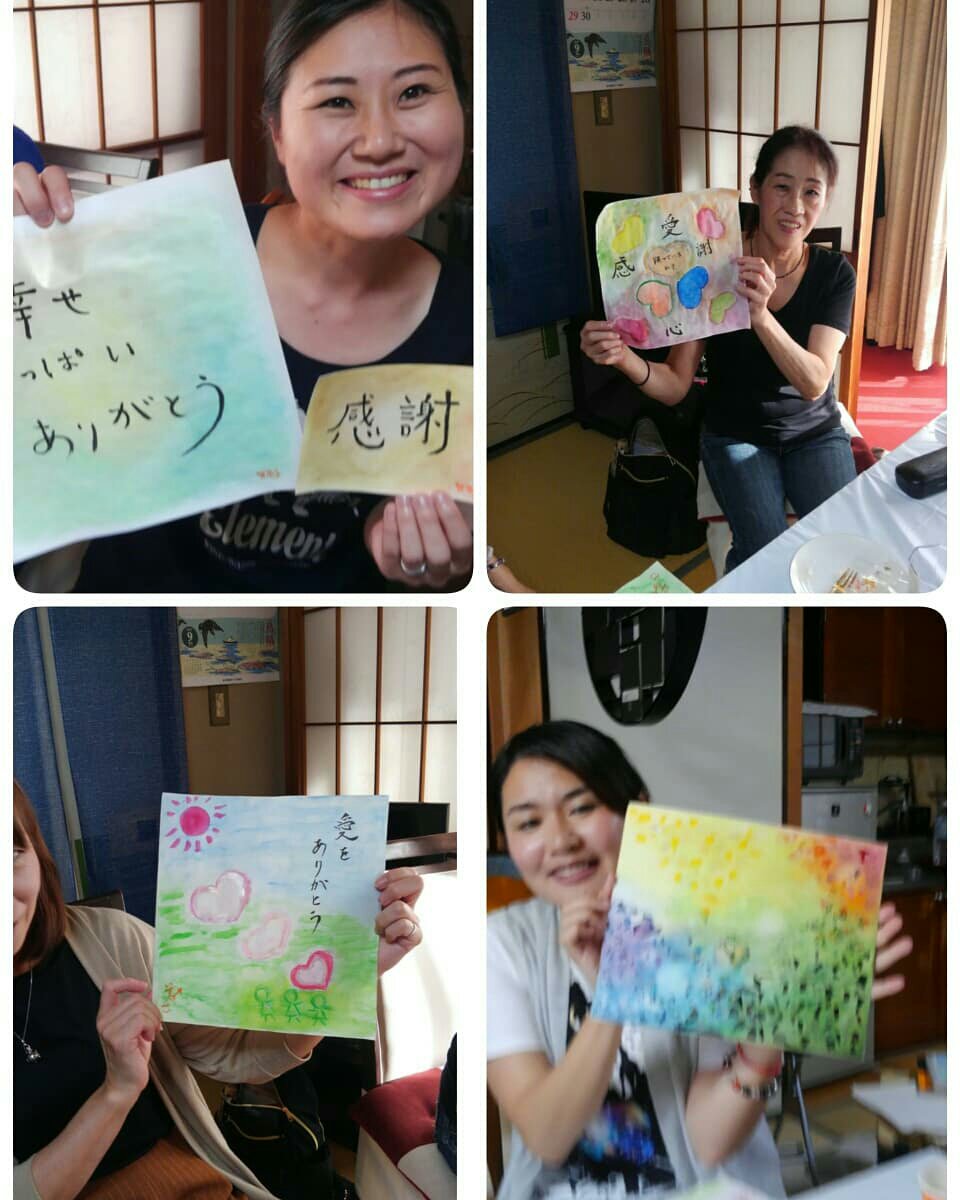 幸せ
っぱい
ありがとう
感謝
Element
29 30
9
愛
感
謝
心
9
愛を
ありがとう